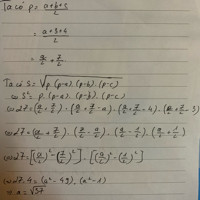 Ta có p = (a+b+c)/2
= (a+3+4)/2
= a/2 + 7/2
Ta có S = √(p.(p-a).(p-b).(p-c))
⇔ S² = p.(p-a).(p-b).(p-c)
⇔ 27 = (a/2 + 7/2).(a/2 + 7/2 - a).(a/2 + 7/2 - 4).(a/2 + 7/2 - 3)
⇔ 27 = (a/2 + 7/2).(7/2 - a/2).(a/2 - 1/2).(a/2 + 1/2)
⇔ 27 = [(a/2)² - (7/2)²] . [(a/2)² - (1/2)²]
⇔ 27.4 = (a² - 49).(a² - 1)
⇔ a = √37